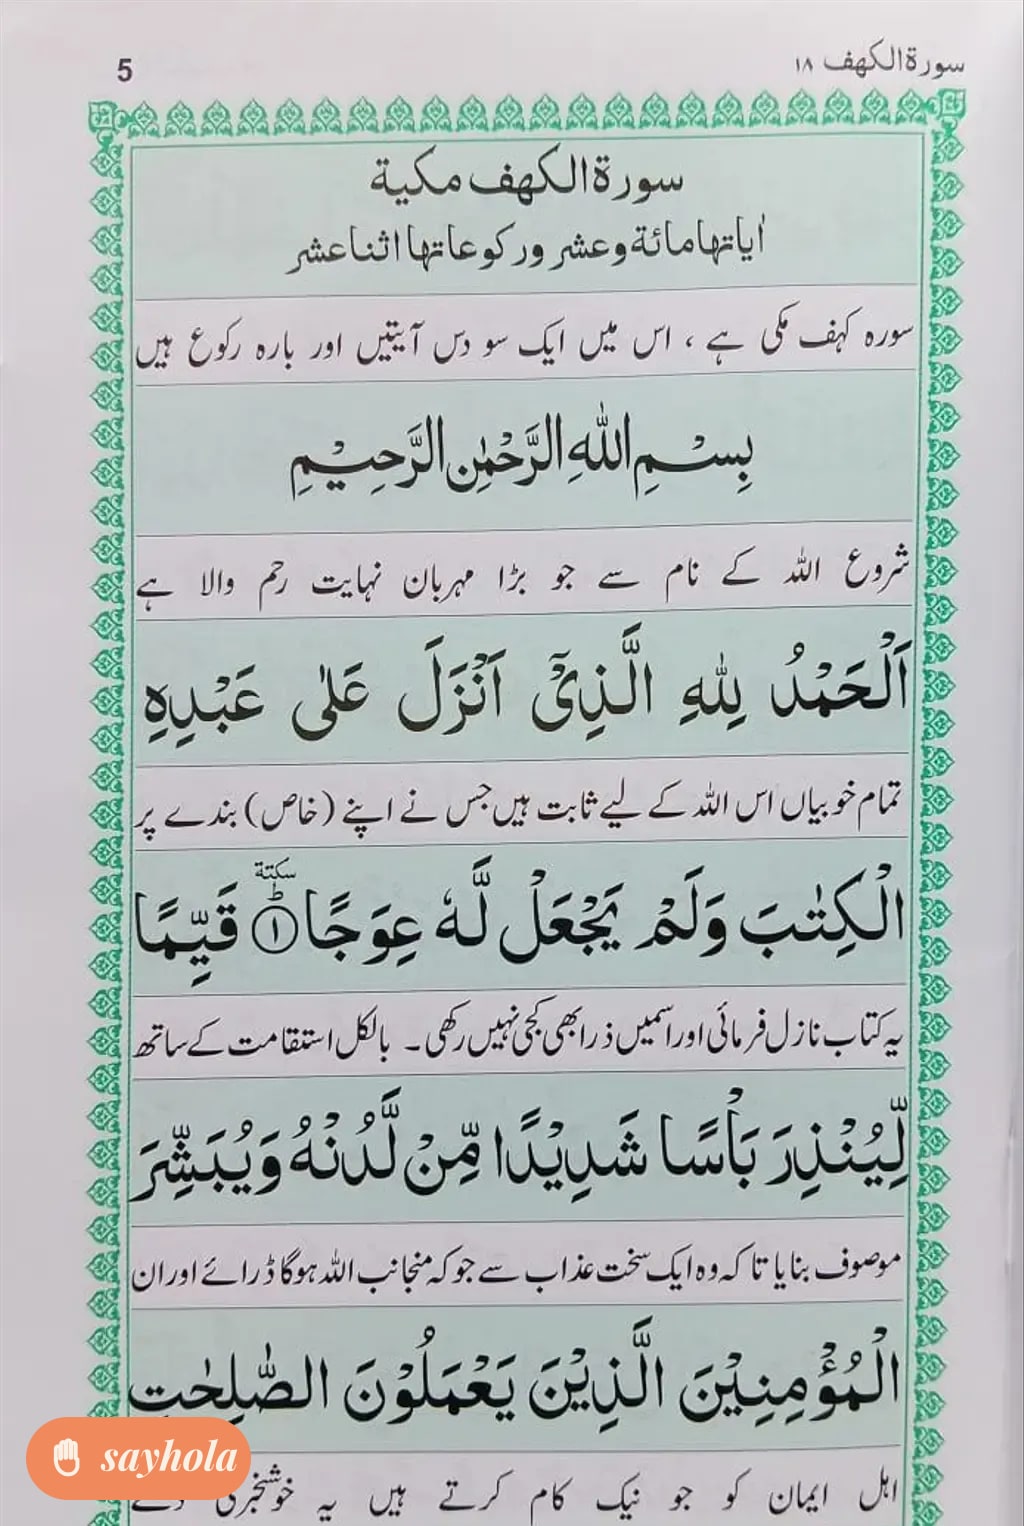 سورة الكهف ١٨
5
سورة الكهف مكية
اٰياتها مائة وعشر وركوعاتها اثنا عشر
سورہ کہف مکی ہے ، اس میں ایک سو دس آیتیں اور بارہ رکوع ہیں
بِسْمِ اللّٰهِ الرَّحْمٰنِ الرَّحِيْمِ
شروع اللہ کے نام سے جو بڑا مہربان نہایت رحم والا ہے
اَلْحَمْدُ لِلّٰهِ الَّذِيْٓ اَنْزَلَ عَلٰى عَبْدِهِ
تمام خوبیاں اس اللہ کے لیے ثابت ہیں جس نے اپنے (خاص) بندے پر
الْكِتٰبَ وَلَمْ يَجْعَلْ لَّهٗ عِوَجًا ؕ سكتة ۱ قَيِّمًا
یہ کتاب نازل فرمائی اور اسمیں ذرا بھی کجی نہیں رکھی۔ بالکل استقامت کے ساتھ
لِّيُنْذِرَ بَاْسًا شَدِيْدًا مِّنْ لَّدُنْهُ وَيُبَشِّرَ
موصوف بنایا تا کہ وہ ایک سخت عذاب سے جو کہ منجانب اللہ ہوگا ڈرائے اور ان
الْمُؤْمِنِيْنَ الَّذِيْنَ يَعْمَلُوْنَ الصّٰلِحٰتِ
اہل ایمان کو جو نیک کام کرتے ہیں یہ خوشخبری
sayhola